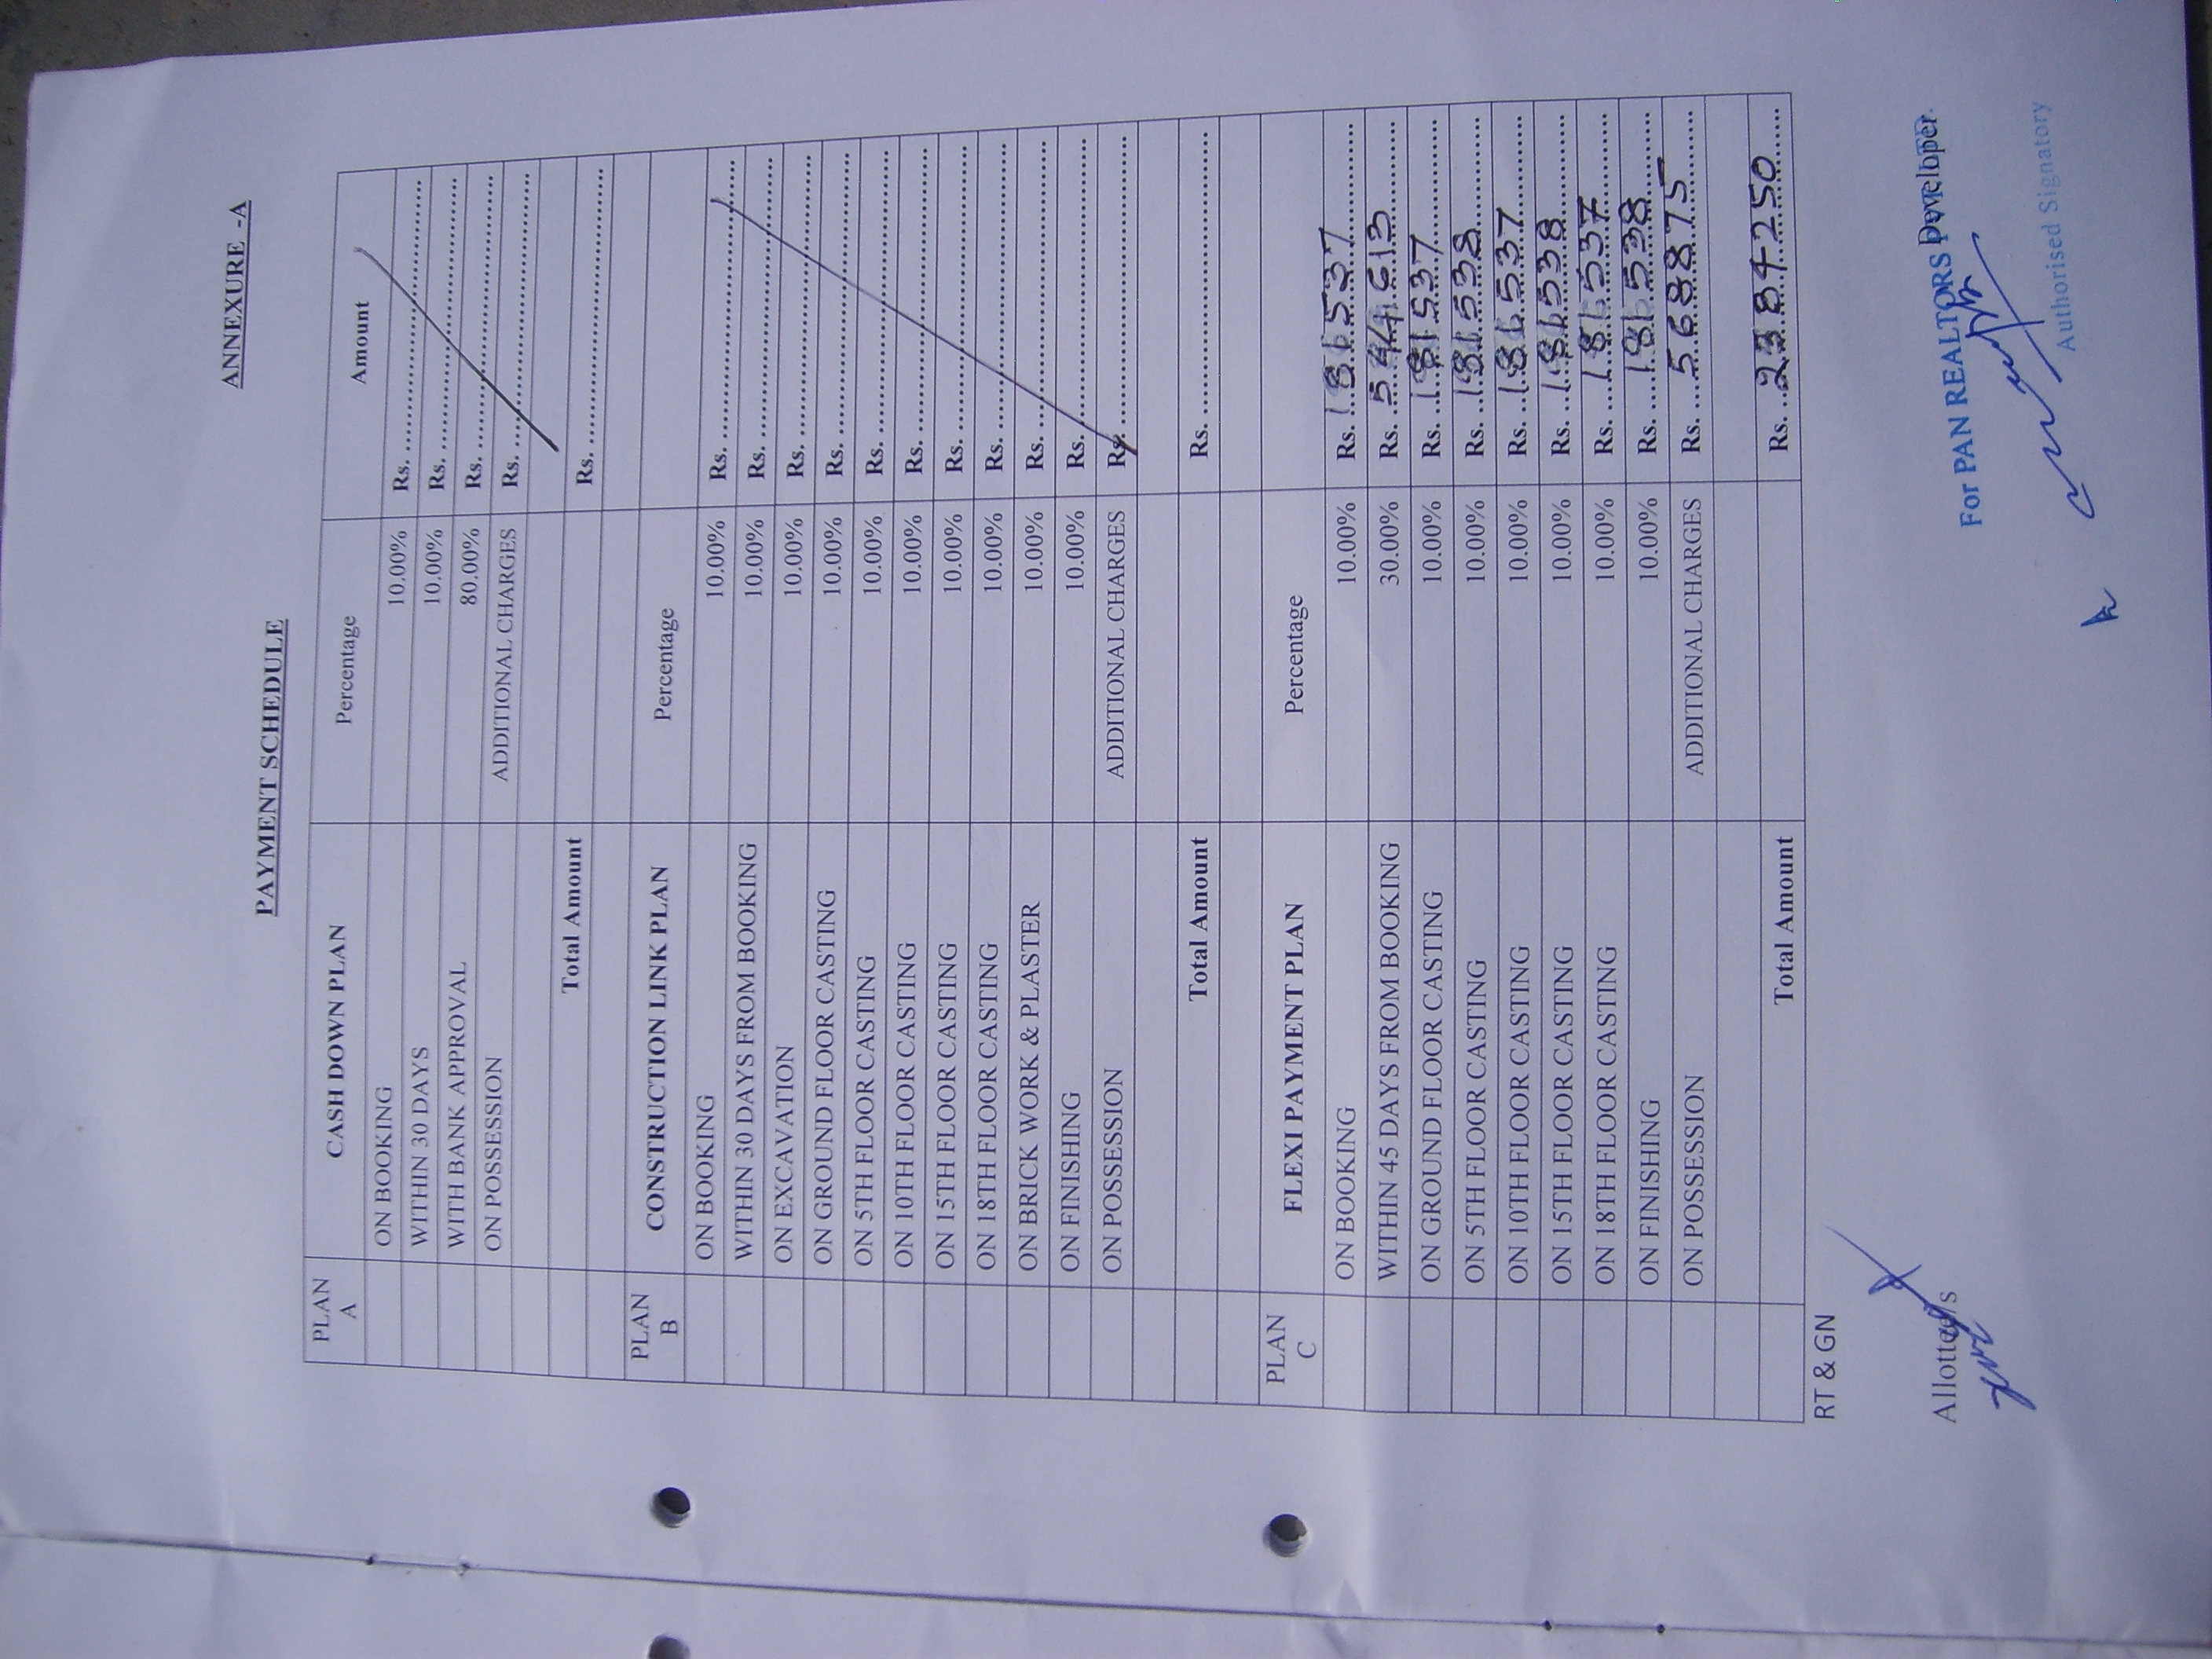 ANNEXURE -A
PAYMENT SCHEDULE
PLAN A CASH DOWN PLAN Percentage Amount
ON BOOKING 10.00% Rs. ........................................
WITHIN 30 DAYS 10.00% Rs. ........................................
WITH BANK APPROVAL 80.00% Rs. ........................................
ON POSSESSION ADDITIONAL CHARGES Rs. ........................................
Total Amount Rs. ........................................
PLAN B CONSTRUCTION LINK PLAN Percentage
ON BOOKING 10.00% Rs. ........................................
WITHIN 30 DAYS FROM BOOKING 10.00% Rs. ........................................
ON EXCAVATION 10.00% Rs. ........................................
ON GROUND FLOOR CASTING 10.00% Rs. ........................................
ON 5TH FLOOR CASTING 10.00% Rs. ........................................
ON 10TH FLOOR CASTING 10.00% Rs. ........................................
ON 15TH FLOOR CASTING 10.00% Rs. ........................................
ON 18TH FLOOR CASTING 10.00% Rs. ........................................
ON BRICK WORK & PLASTER 10.00% Rs. ........................................
ON FINISHING 10.00% Rs. ........................................
ON POSSESSION ADDITIONAL CHARGES Rs. ........................................
Total Amount Rs. ........................................
PLAN C FLEXI PAYMENT PLAN Percentage
ON BOOKING 10.00% Rs. 181537
WITHIN 45 DAYS FROM BOOKING 30.00% Rs. 544613
ON GROUND FLOOR CASTING 10.00% Rs. 181537
ON 5TH FLOOR CASTING 10.00% Rs. 181538
ON 10TH FLOOR CASTING 10.00% Rs. 181537
ON 15TH FLOOR CASTING 10.00% Rs. 181538
ON 18TH FLOOR CASTING 10.00% Rs. 181537
ON FINISHING 10.00% Rs. 181538
ON POSSESSION ADDITIONAL CHARGES Rs. 568875
Total Amount Rs. 2384250
RT & GN
Allottee/s Developer
For PAN REALTORS PVT. LTD.
Authorised Signatory